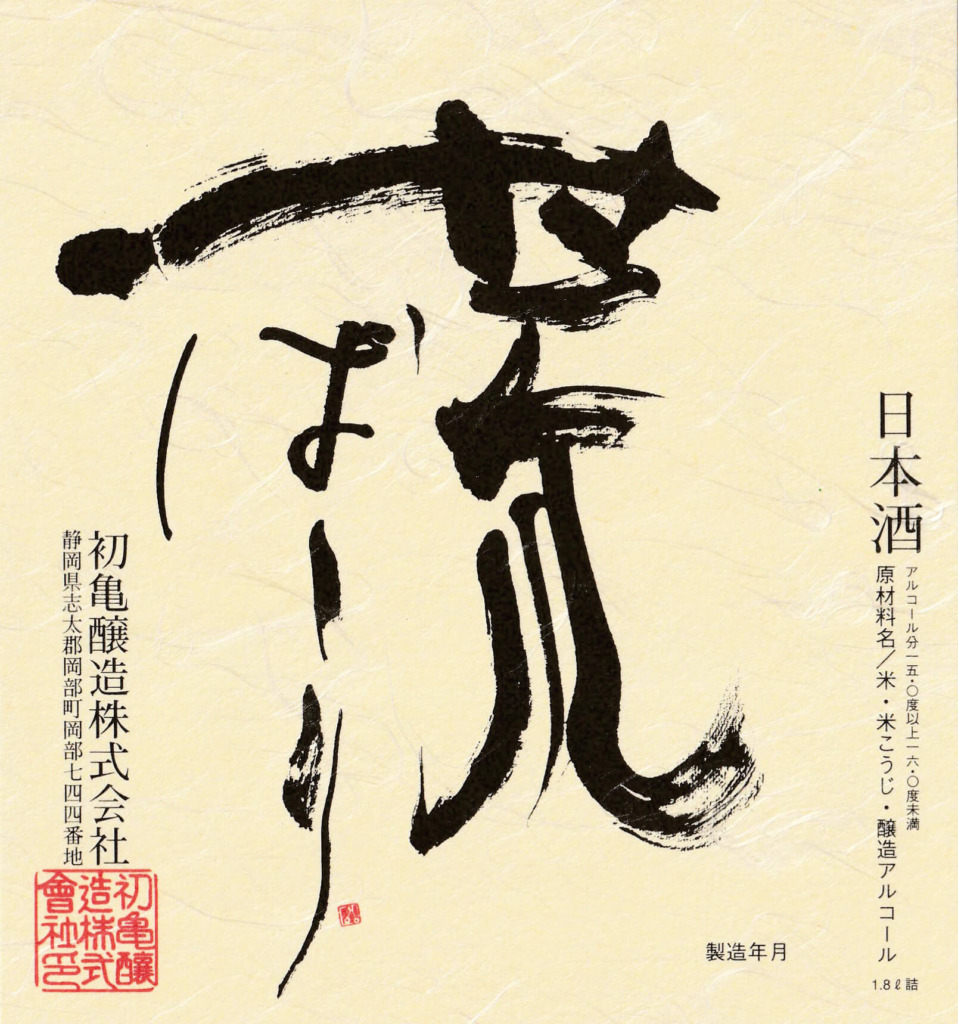 日本酒
アルコール分一五・〇度以上一六・〇度未満
原材料名／米・米こうじ・醸造アルコール
1.8ℓ詰
製造年月
荒
ばしり
初亀醸造株式会社
静岡県志太郡岡部町岡部七四四番地
初亀醸
造株式
會社印